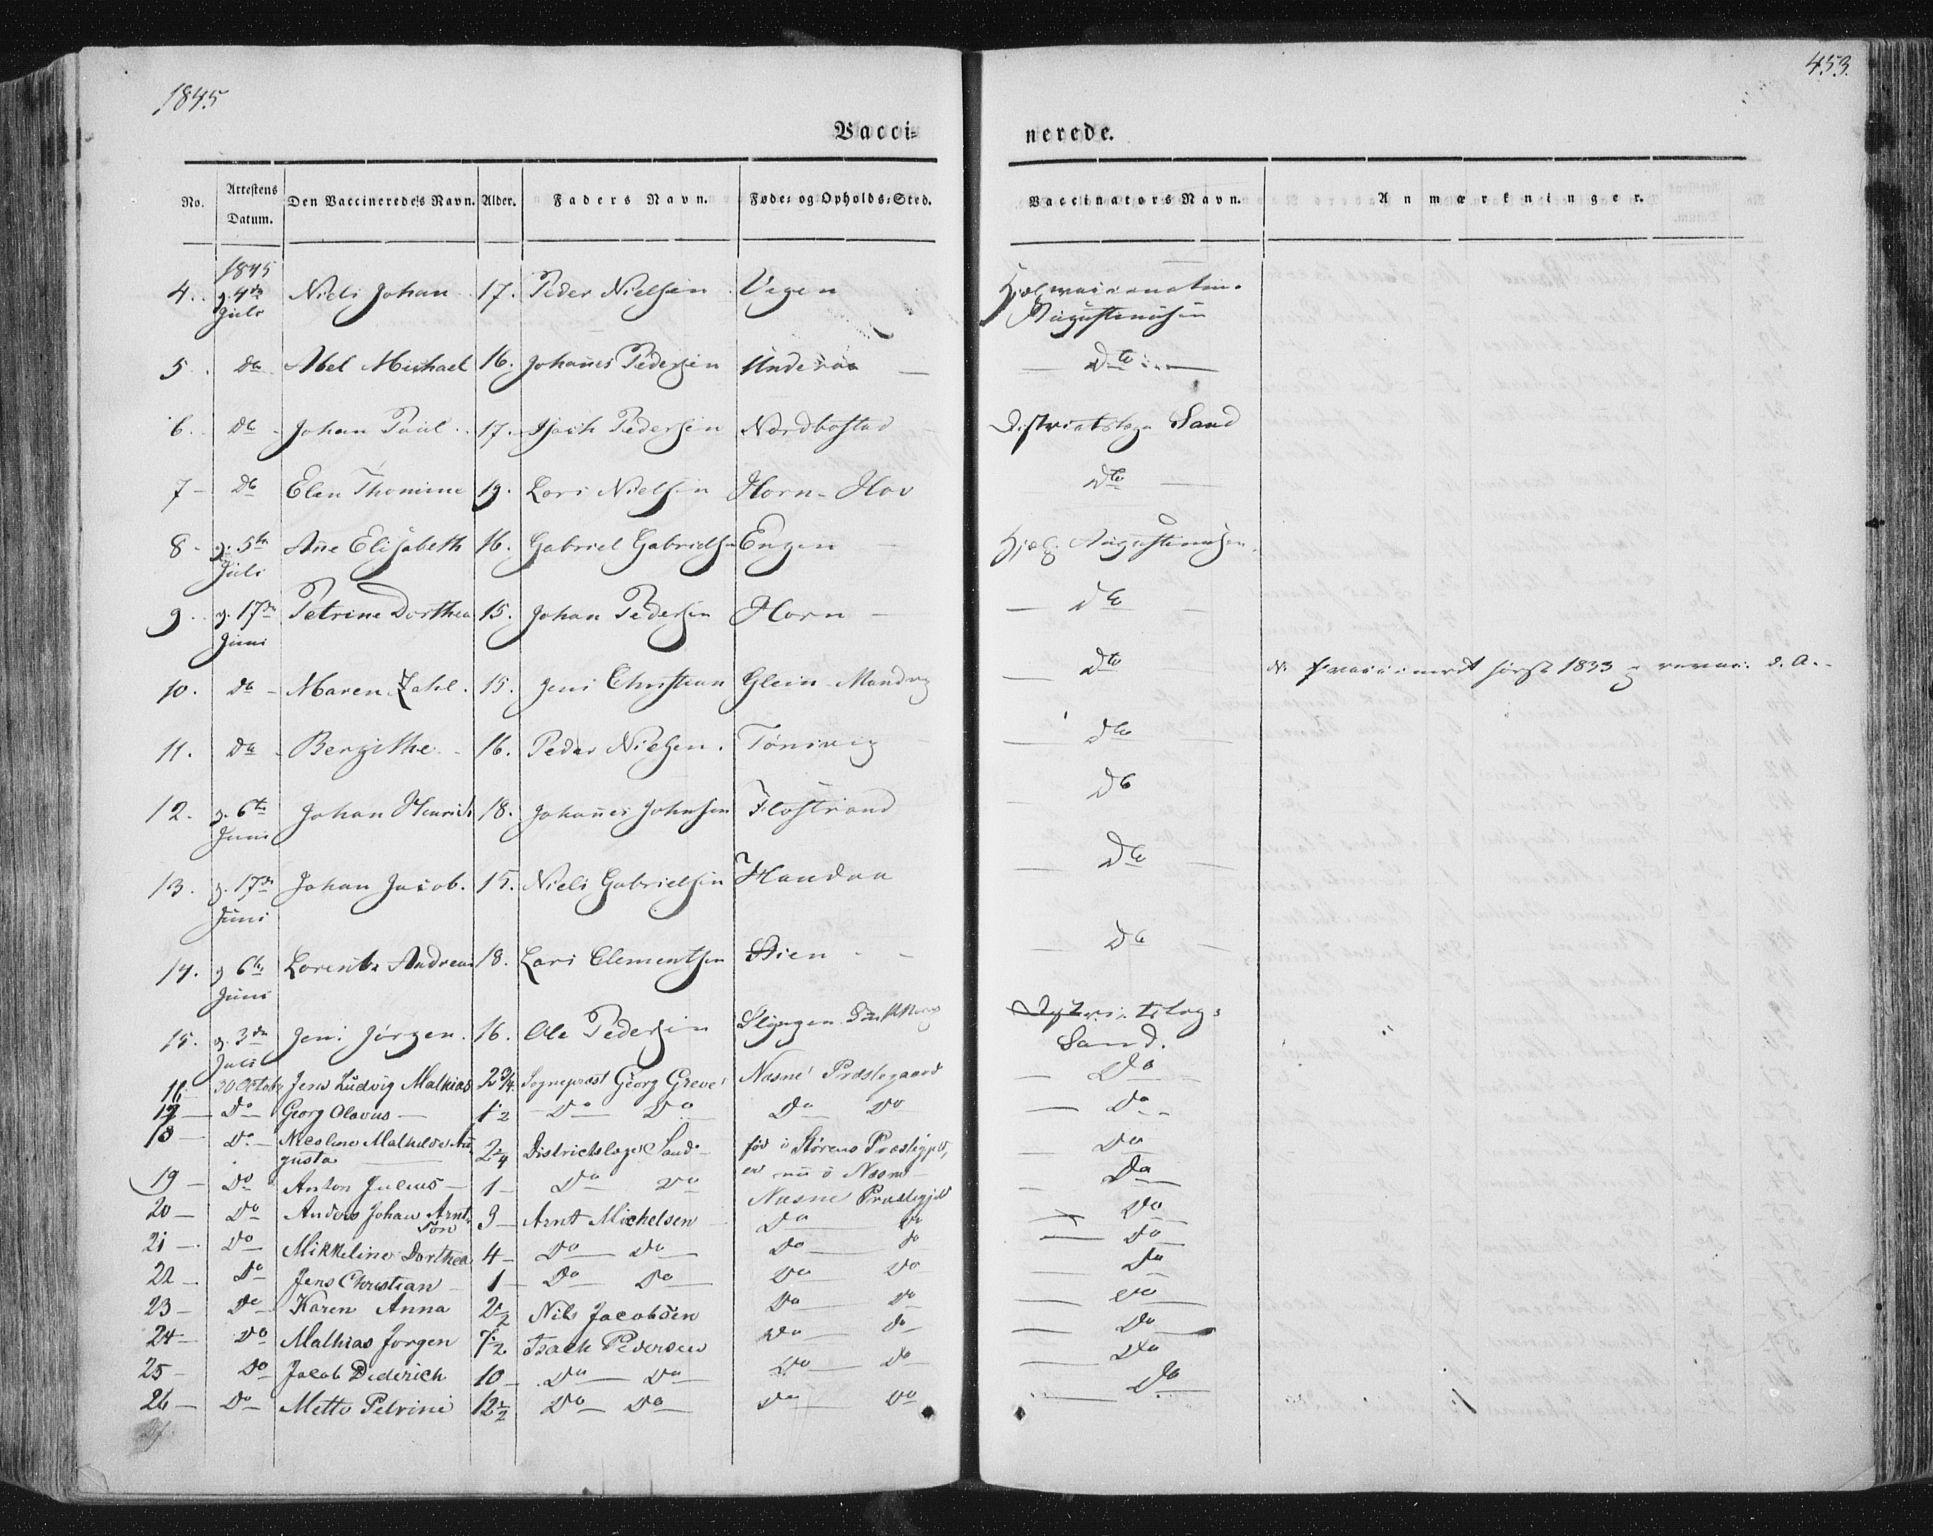 1845
453.
Vacci= nerede.
No. Attestens Datum. Den Vaccineredes Navn. Alder. Faders Navn. Føde= og Opholds=Sted. Vaccinators Navn. Anmærkninger.
1845
4. 4de Juli Niels Johan 17. Peder Nielsen Vegen Augustinusen
5. Do Abel Michael 16. Johannes Pedersen Do
6. Do Johan Paul 17. Isach Pedersen Nordbostad Districtslæge Sand
7 Do Elen Thomine 19. Lars Nielsen Horn Do
8 5te Juli Ane Elisabeth 16. Gabriel Gabrielsen Engen Hjelp. Augustinusen
9 17de Juni Petrine Dorthea 15. Johan Pedersen Horn Do
10. Do Maren Zahl. 15. Jens Christian Glein Do vaccineret først 1833
11. Do Bergithe 16. Peder Nielsen. Do
12. 6te Juni Johan Henrik 18. Johannes Johnsen Flostrand Do
13. 17de Juni Johan Jacob. 15. Niels Gabrielsen Handaa Do
14. 6te Juni Lorents Andreas 18. Lars Clementsen Do
15. 3die Juli Jens Jørgen. 16. Ole Pedersen Districtslæge
Sand.
16 30 Octobr Jens Ludvig Mathias 2 3/4 Sognepræst Georg Greve Næsne Præstegaard Do
17 Do Georg Olavus 1/2 Do Do Do Do Do
18 Do Nicoline Mathilde Au= 2 1/4 Districtslæge Sand fød i Størens Præstegjeld, Do
gusta er nu i Næsne
19 Do Anton Julius 1 Do Do Næsne Præstegjeld Do
20 Do Anders Johan Arnt= 9 Arnt Michelsen Do Do Do
søn
21 Do Mikkeline Dorthea 4 Do Do Do Do Do
22 Do Jens Christian 1 Do Do Do Do Do
23 Do Karen Anna 2 1/2 Nils Jacobsen Do Do Do
24 Do Mathias Jørgen 7 1/2 Isach Pedersen Do Do Do
25 Do Jacob Diderich 10 Do Do Do Do Do
26 Do Mette Petrine 12 1/2 Do Do Do Do Do